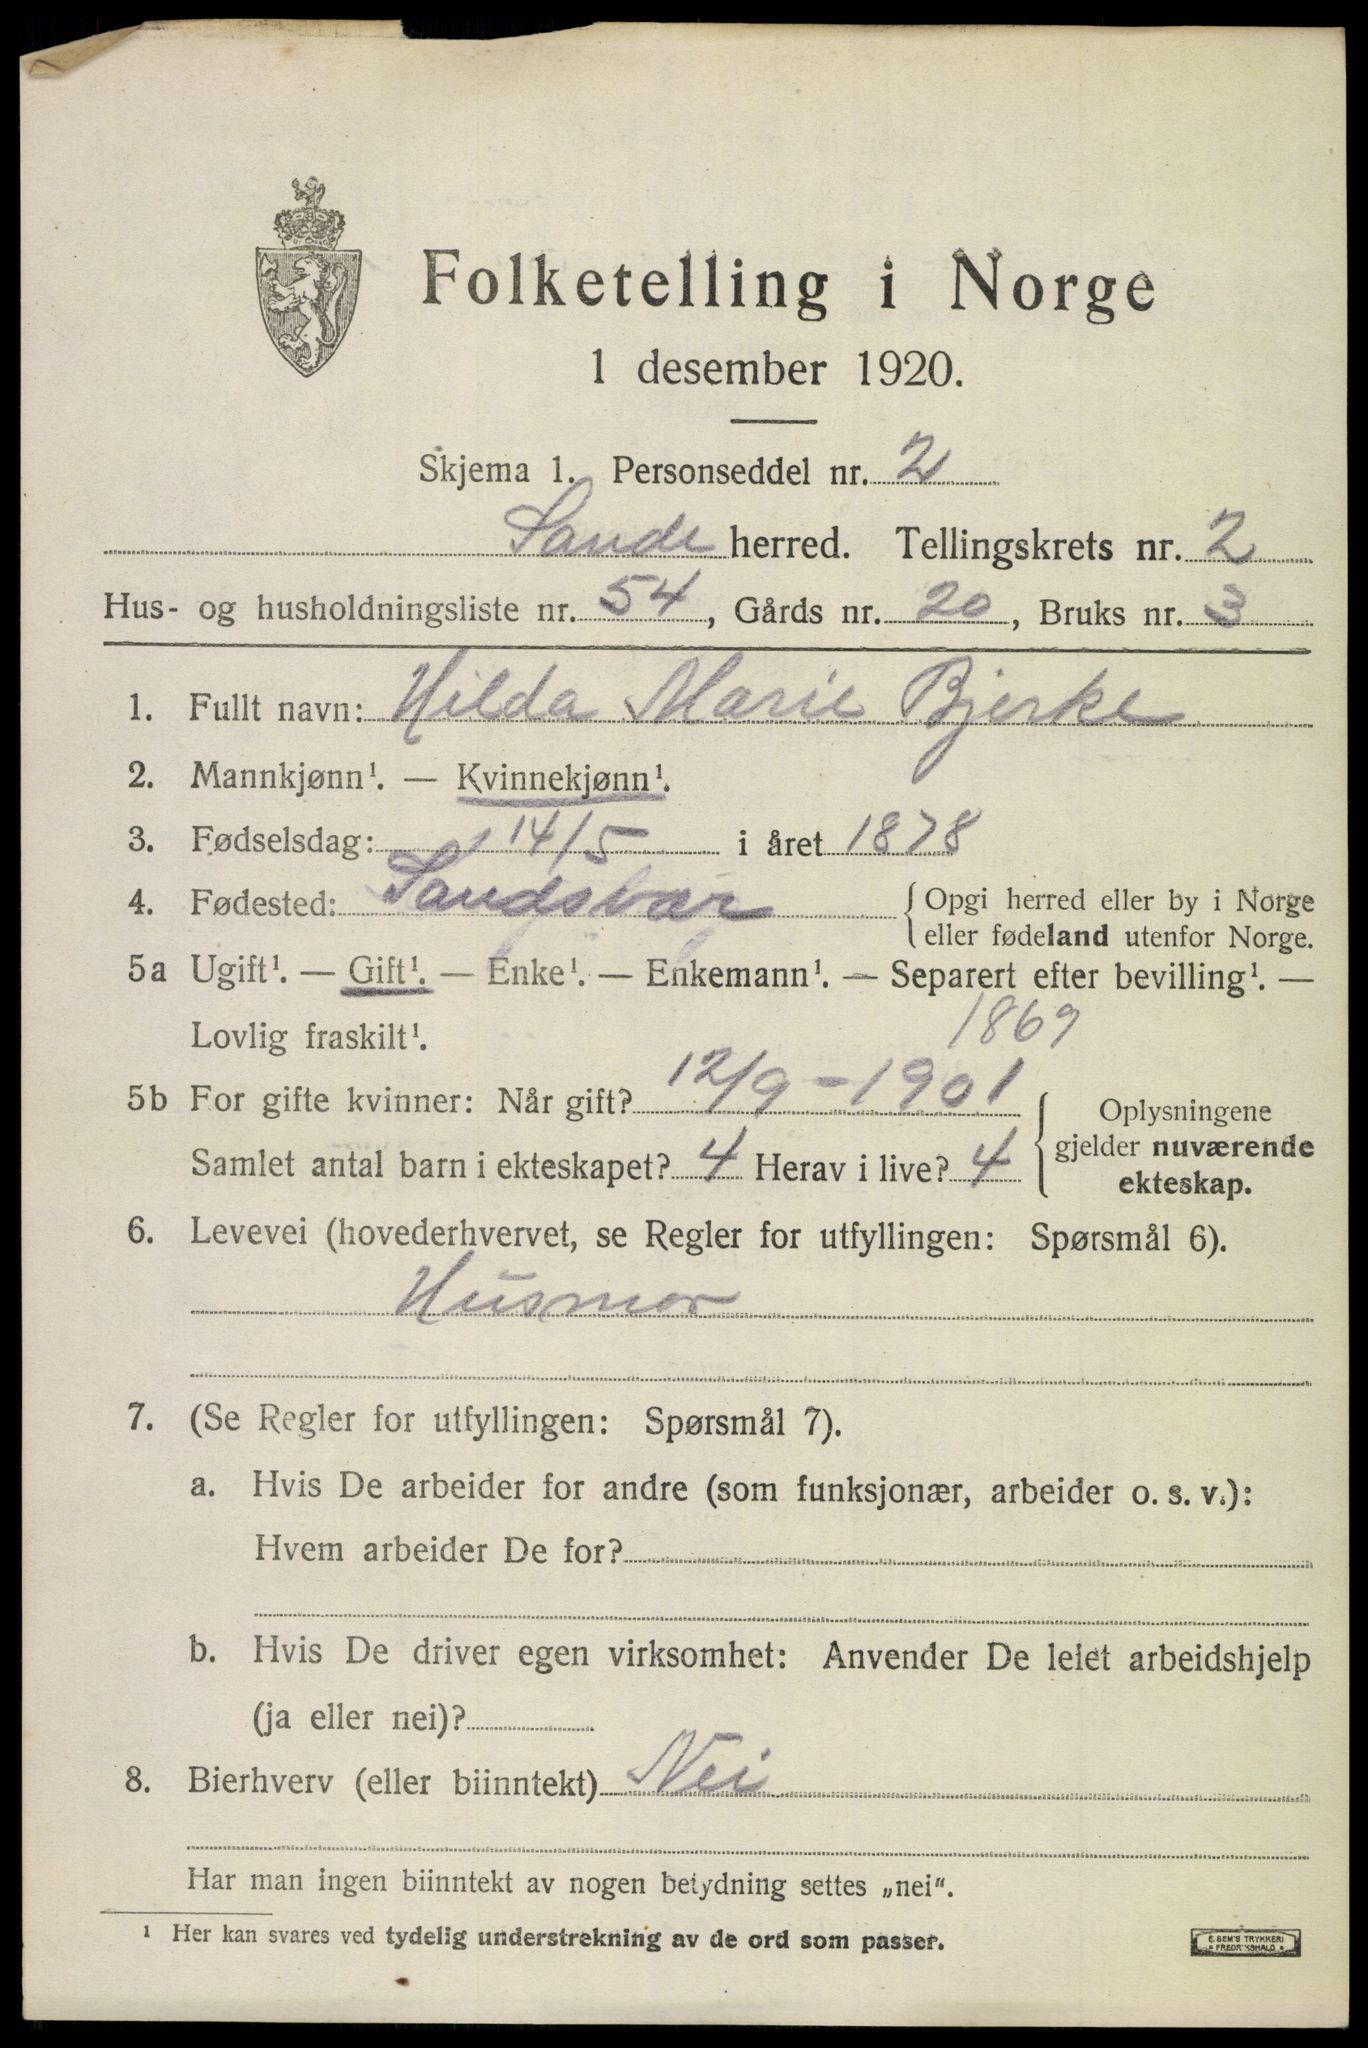 Folketelling i Norge
1 desember 1920.
Skjema 1. Personseddel nr. 2
Sande herred. Tellingskrets nr. 2
Hus- og husholdningsliste nr. 54, Gårds nr. 20, Bruks nr. 3
1. Fullt navn: Hilda Marie Bjerke
2. Mannkjønn¹. — Kvinnekjønn¹.
3. Fødselsdag: 14/5 i året 1878
4. Fødested: Sandsvær { Opgi herred eller by i Norge
eller fødeland utenfor Norge.
5a Ugift¹. — Gift¹. — Enke¹. — Enkemann¹. — Separert efter bevilling¹. —
Lovlig fraskilt¹. 1869
5b For gifte kvinner: Når gift? 12/9-1901
Samlet antal barn i ekteskapet? 4 Herav i live? 4
{ Oplysningene
gjelder nuværende
ekteskap.
6. Levevei (hovederhvervet, se Regler for utfyllingen: Spørsmål 6).
Husmor
7. (Se Regler for utfyllingen: Spørsmål 7).
a. Hvis De arbeider for andre (som funksjonær, arbeider o. s. v.):
Hvem arbeider De for?
b. Hvis De driver egen virksomhet: Anvender De leiet arbeidshjelp
(ja eller nei)?
8. Bierhverv (eller biinntekt) Nei
Har man ingen biinntekt av nogen betydning settes „nei".
¹ Her kan svares ved tydelig understrekning av de ord som passer.
E. SEM'S TRYKKERI
FREDRIKSHALD